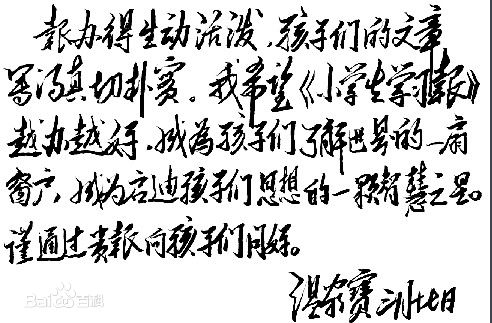 报办得生动活泼，孩子们的文章
写得真切朴实。我希望《小学生学习报》
越办越好，成为孩子们了解世界的一扇
窗户，成为启迪孩子们思想的一颗智慧之星。
谨通过贵报向孩子们问好。
温家宝 三月十七日
Bai百科